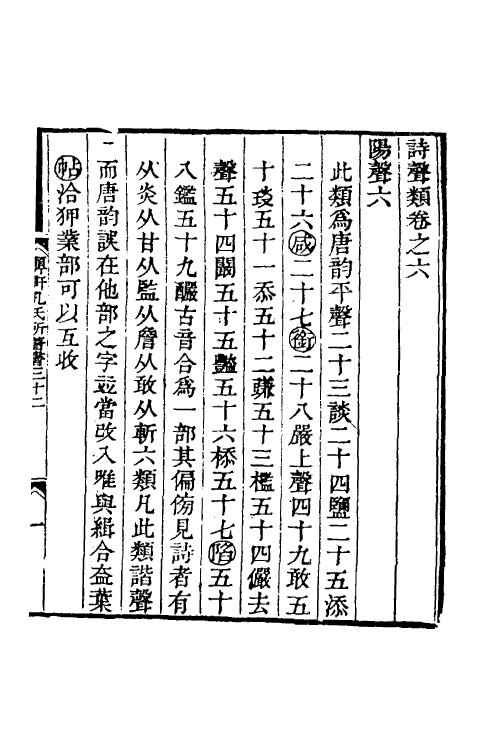 詩聲類卷之六
陽聲六
此類爲唐韵平聲二十三談二十四鹽二十五添
二十六咸二十七銜二十八嚴上聲四十九敢五
十琰五十一忝五十二豏五十三檻五十四儼去
聲五十四闞五十五豔五十六㮇五十七陷五十
八鑑五十九釅古音合爲一部其偏㫄見詩者有
从炎从甘从監从詹从敢从斬六類凡此類諧聲
而唐韵誤在他部之字竝當改入唯與緝合盍葉
帖洽狎業部可以互收
顨軒孔氏所著書三十二
一